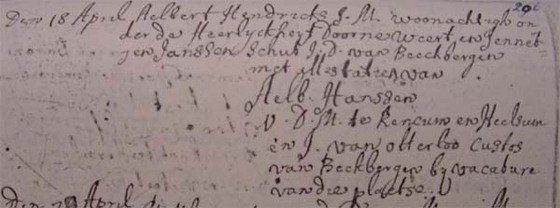 206
Den 18 April Aelbert Hendricks J. M. woonachtigh on
der de Heerlyckheyt Doorneweert, en Jennet
jen Janssen Schut J. D. van Beeckbergen
met Attestatien van
Aelb. Hanssen
V. D. M. te Rencum en Heelsum
en J. van Otterloo Custos
van Beckbergen by vacature
van die plaetse.
Den 28 April